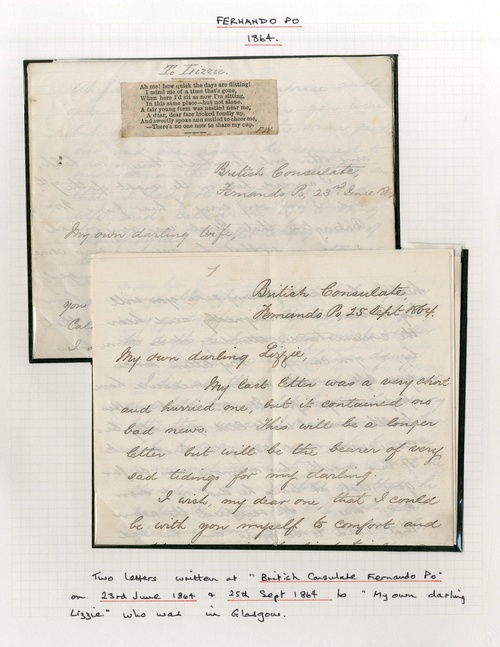 FERNANDO PO
1864.
To Lizzie.
Ah me! how quick the days are flitting!
I mind me of a time that's gone,
When here I'd sit as now I'm sitting,
In this same place—but not alone.
A fair young form was nestled near me,
A dear, dear face looked fondly up,
And sweetly spoke and smiled to cheer me,
—There's no one now to share my cup.
British Consulate,
Fernando Po, 23rd June
My own darling Wife,
you
British Consulate,
Fernando Po, 25 Sept 1864.
My own darling Lizzie,
My last letter was a very short
and hurried one, but it contained no
bad news. This will be a longer
letter but will be the bearer of very
sad tidings for my darling.
I wish, my dear one, that I could
be with you myself to comfort and
Two letters written at "British Consulate Fernando Po"
on 23rd June 1864 & 25th Sept 1864 to "My own darling
Lizzie" who was in Glasgow.